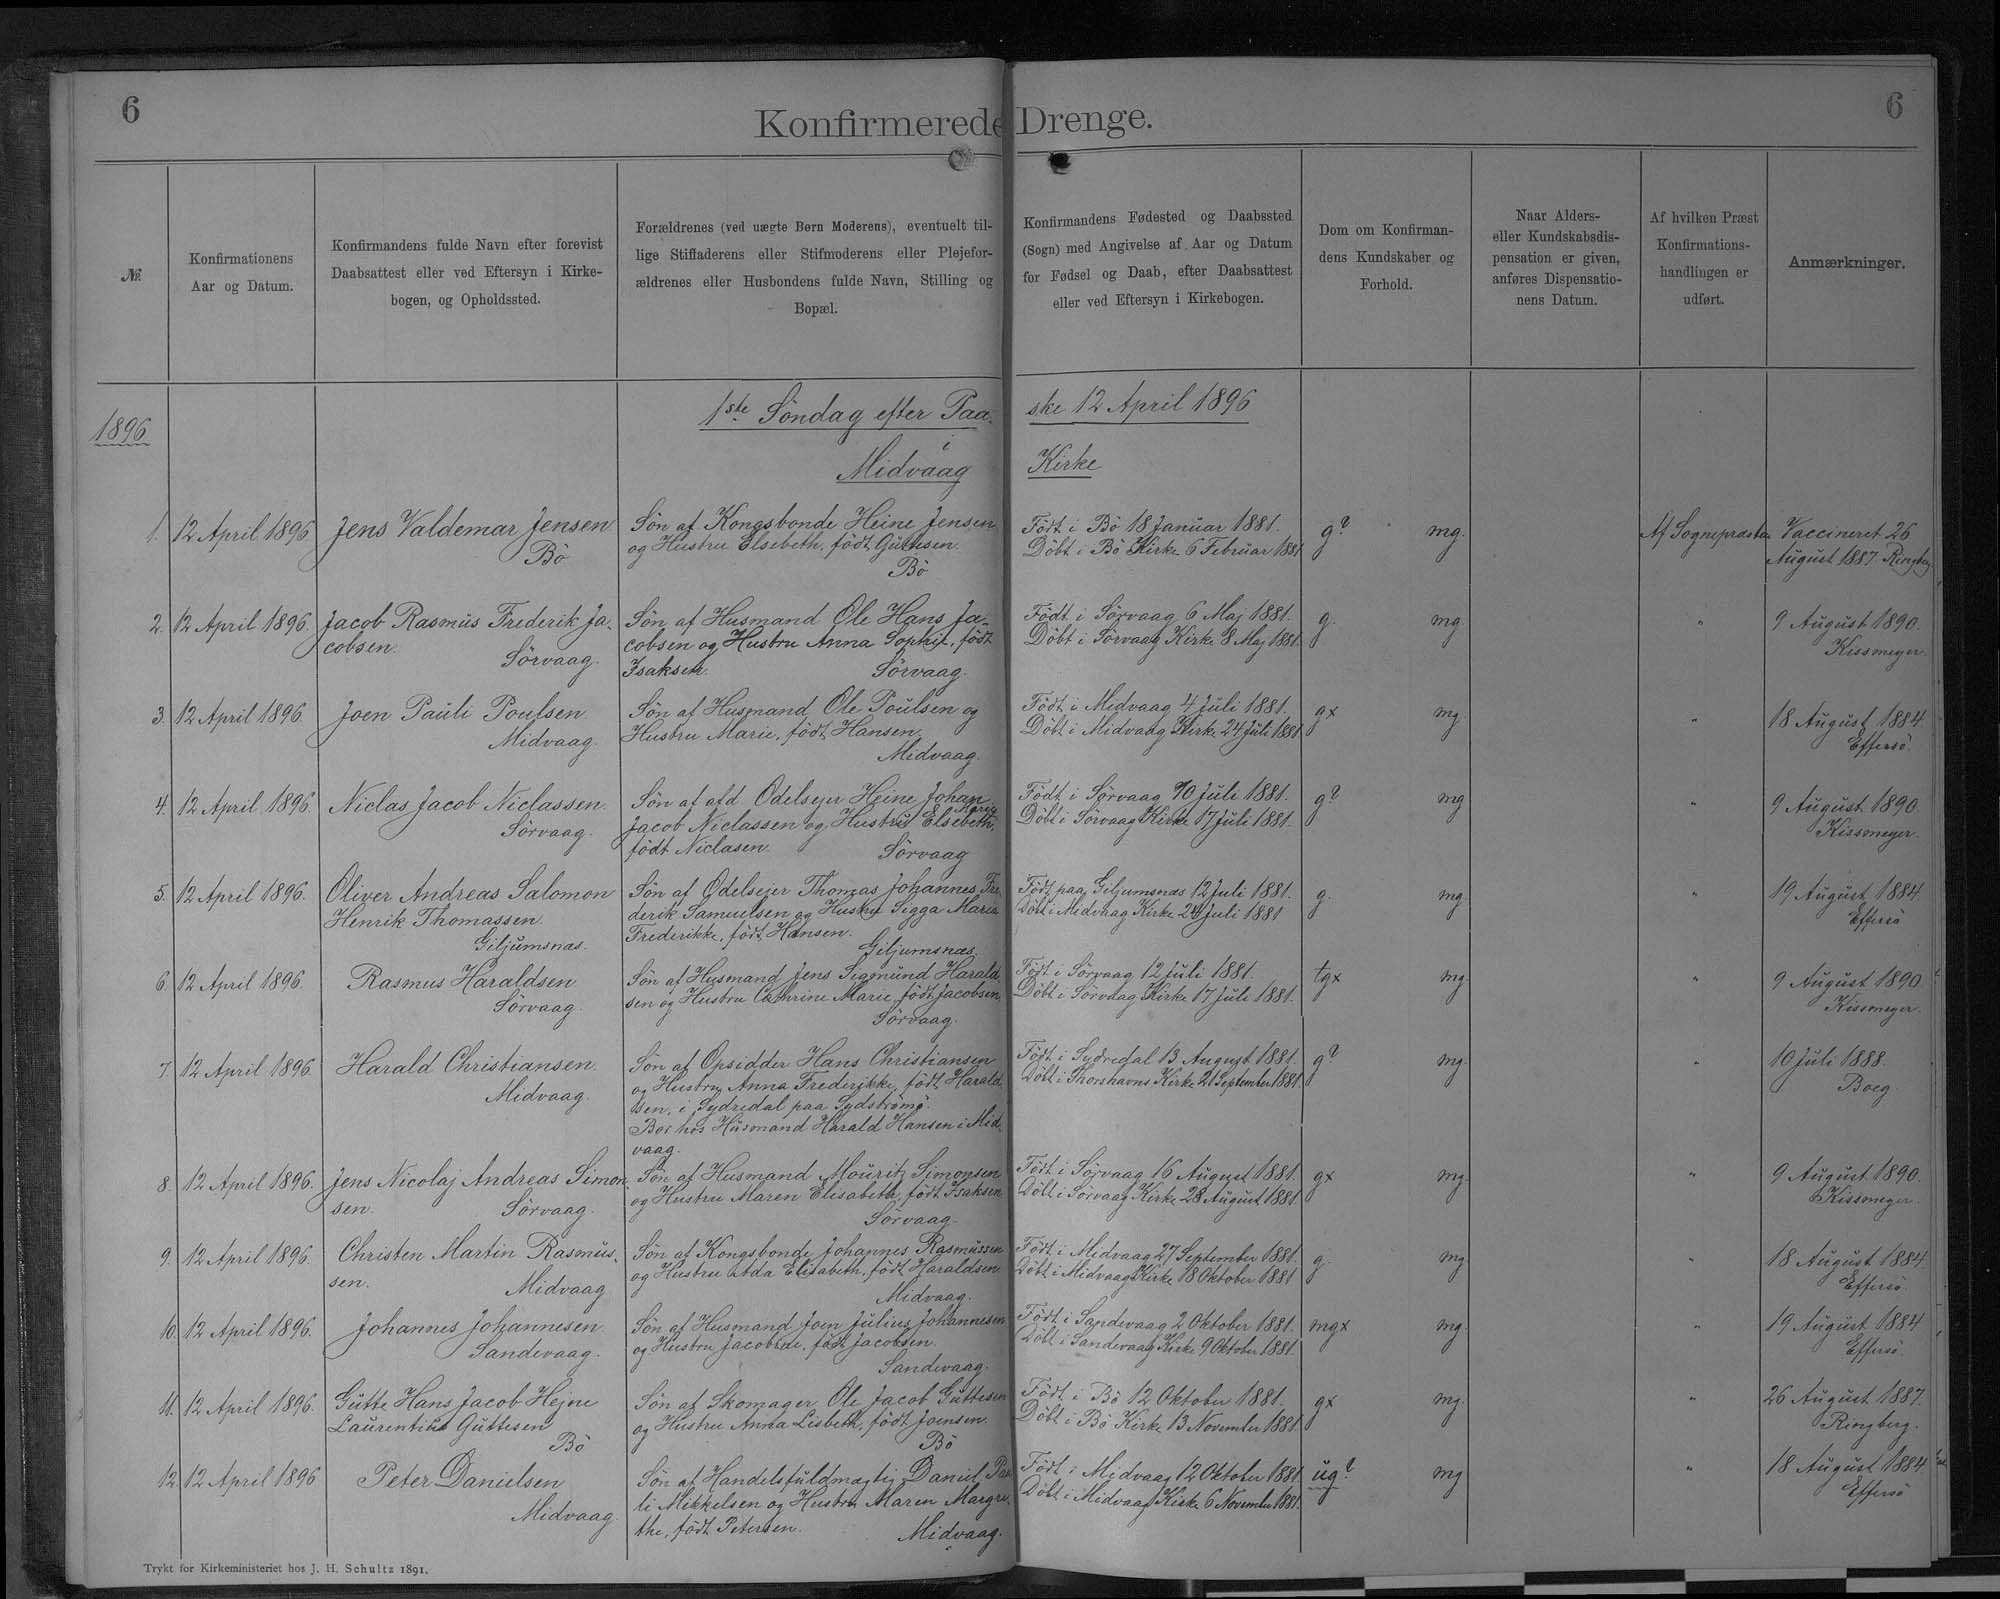 6
6
Konfirmerede Drenge.
№.
Konfirmationens
Aar og Datum.
Konfirmandens fulde Navn efter forevist
Daabsattest eller ved Eftersyn i Kirke-
bogen, og Opholdssted.
Forældrenes (ved uægte Børn Moderens), eventuelt til-
lige Stiffaderens eller Stifmoderens eller Plejefor-
ældrenes eller Husbondens fulde Navn, Stilling og
Bopæl.
Konfirmandens Fødested og Daabssted
(Sogn) med Angivelse af Aar og Datum
for Fødsel og Daab, efter Daabsattest
eller ved Eftersyn i Kirkebogen.
Dom om Konfirman-
dens Kundskaber og
Forhold.
Naar Alders-
eller Kundskabsdis-
pensation er given,
anføres Dispensatio-
nens Datum.
Af hvilken Præst
Konfirmations-
handlingen er
udført.
Anmærkninger.
1896
1ste Söndag efter Paa- ske 12 April 1896
i
Midvaag Kirke
1. 12 April 1896
Jens Valdemar Jensen
Bö
Sön af Kongsbonde Heine Jensen
og Hustru Elsebeth, födt Guttesen.
Bö
Födt i Bö 18 Januar 1881.
Döbt i Bö Kirke 6 Februar 1881
g? mg.
Af Sognepræsten
Vaccineret 26
August 1887 Ringberg
2. 12 April 1896.
Jacob Rasmus Frederik Ja-
cobsen.
Sörvaag.
Sön af Husmand Ole Hans Ja-
cobsen og Hustru Anna Sophie, födt
Isaksen.
Sörvaag.
Födt i Sörvaag 6 Maj 1881.
Döbt i Sörvaag Kirke 8 Maj 1881.
g. mg
"
9 August 1890.
Kissmeyer.
3. 12 April 1896.
Joen Pauli Poulsen
Midvaag.
Sön af Husmand Ole Poulsen og
Hustru Marie, födt Hansen.
Midvaag.
Födt i Midvaag 4 Juli 1881.
Döbt i Midvaag Kirke 24 Juli 1881
gx mg
"
18 August 1884.
Effersö.
4. 12 April 1896
Niclas Jacob Niclassen.
Sörvaag.
Sön af afd. Odelsejer Heine Johan
Jacob Niclassen og Hustru Elsebeth Marie,
födt Niclasen.
Sörvaag
Födt i Sörvaag 10 Juli 1881.
Döbt i Sörvaag Kirke 17 Juli 1881.
g? mg
"
9 August 1890.
Kissmeyer.
5. 12 April 1896.
Oliver Andreas Salomon
Henrik Thomassen.
Giljumsnæs.
Sön af Odelsejer Thomas Johannes Fre-
derik Samuelsen og Hustru Sigga Maria
Frederikke, födt Hansen.
Giljumsnæs.
Födt paa Giljumsnæs 12 Juli 1881.
Döbt i Midvaag Kirke 24 Juli 1881
g. mg.
"
19 August 1884.
Effersö
6. 12 April 1896.
Rasmus Haraldsen
Sörvaag.
Sön af Husmand Jens Sigmund Harald-
sen og Hustru Cathrine Marie, födt Jacobsen,
Sörvaag.
Födt i Sörvaag 12 Juli 1881.
Döbt i Sörvaag Kirke 17 Juli 1881.
tgx mg.
"
9 August 1890
Kissmeyer.
7. 12 April 1896.
Harald Christiansen.
Midvaag.
Sön af Opsidder Hans Christiansen
og Hustru Anna Frederikke, födt Harald-
sen, i Sydredal paa Sydströmö.
Bor hos Husmand Harald Hansen i Mid-
vaag.
Födt i Sydredal 13 August 1881.
Döbt i Thorshavns Kirke 21 September 1881.
g? mg.
"
10 Juli 1888.
Boeg
8. 12 April 1896.
Jens Nicolaj Andreas Simon-
sen.
Sörvaag.
Sön af Husmand Mouritz Simonsen
og Hustru Maren Elisabeth, födt Isaksen
Sörvaag.
Födt i Sörvaag 16 August 1881.
Döbt i Sörvaag Kirke 28 August 1881
gx mg.
"
9 August 1890.
Kissmeyer.
9. 12 April 1896.
Christen Martin Rasmus-
sen.
Midvaag
Sön af Kongsbonde Johannes Rasmussen
og Hustru Elisabeth, födt Haraldsen
Midvaag.
Födt i Midvaag 27 September 1881.
Döbt i Midvaag Kirke 18 Oktober 1881
g. mg
"
18 August 1884.
Effersö.
10. 12 April 1896.
Johannes Johannesen.
Sandevaag.
Sön af Husmand Joen Julius Johannesen
og Hustru Jacobine, födt Jacobsen.
Sandevaag.
Födt i Sandevaag 2 Oktober 1881.
Döbt i Sandevaag Kirke 9 Oktober 1881.
mgx mg.
"
19 August 1884
Effersö.
11. 12 April 1896.
Gutte Hans Jacob Hejne
Laurentius Guttesen
Bö
Sön af Skomager Ole Jacob Guttesen
og Hustru Anna Lisbeth, födt Joensen.
Bö
Födt i Bö 12 Oktober 1881.
Döbt i Bö Kirke 13 November 1881.
gx mg.
"
26 August 1887.
Ringberg.
12. 12 April 1896
Peter Danielsen
Midvaag.
Sön af Handelsfuldmægtig Daniel Pau-
li Mikkelsen og Hustru Maren Margre-
the, födt Petersen.
Midvaag.
Födt i Midvaag 12 Oktober 1881.
Döbt i Midvaag Kirke 6 November 1881.
ug? mg
"
18 August 1884
Effersö
Trykt for Kirkeministeriet hos J. H. Schultz 1891.